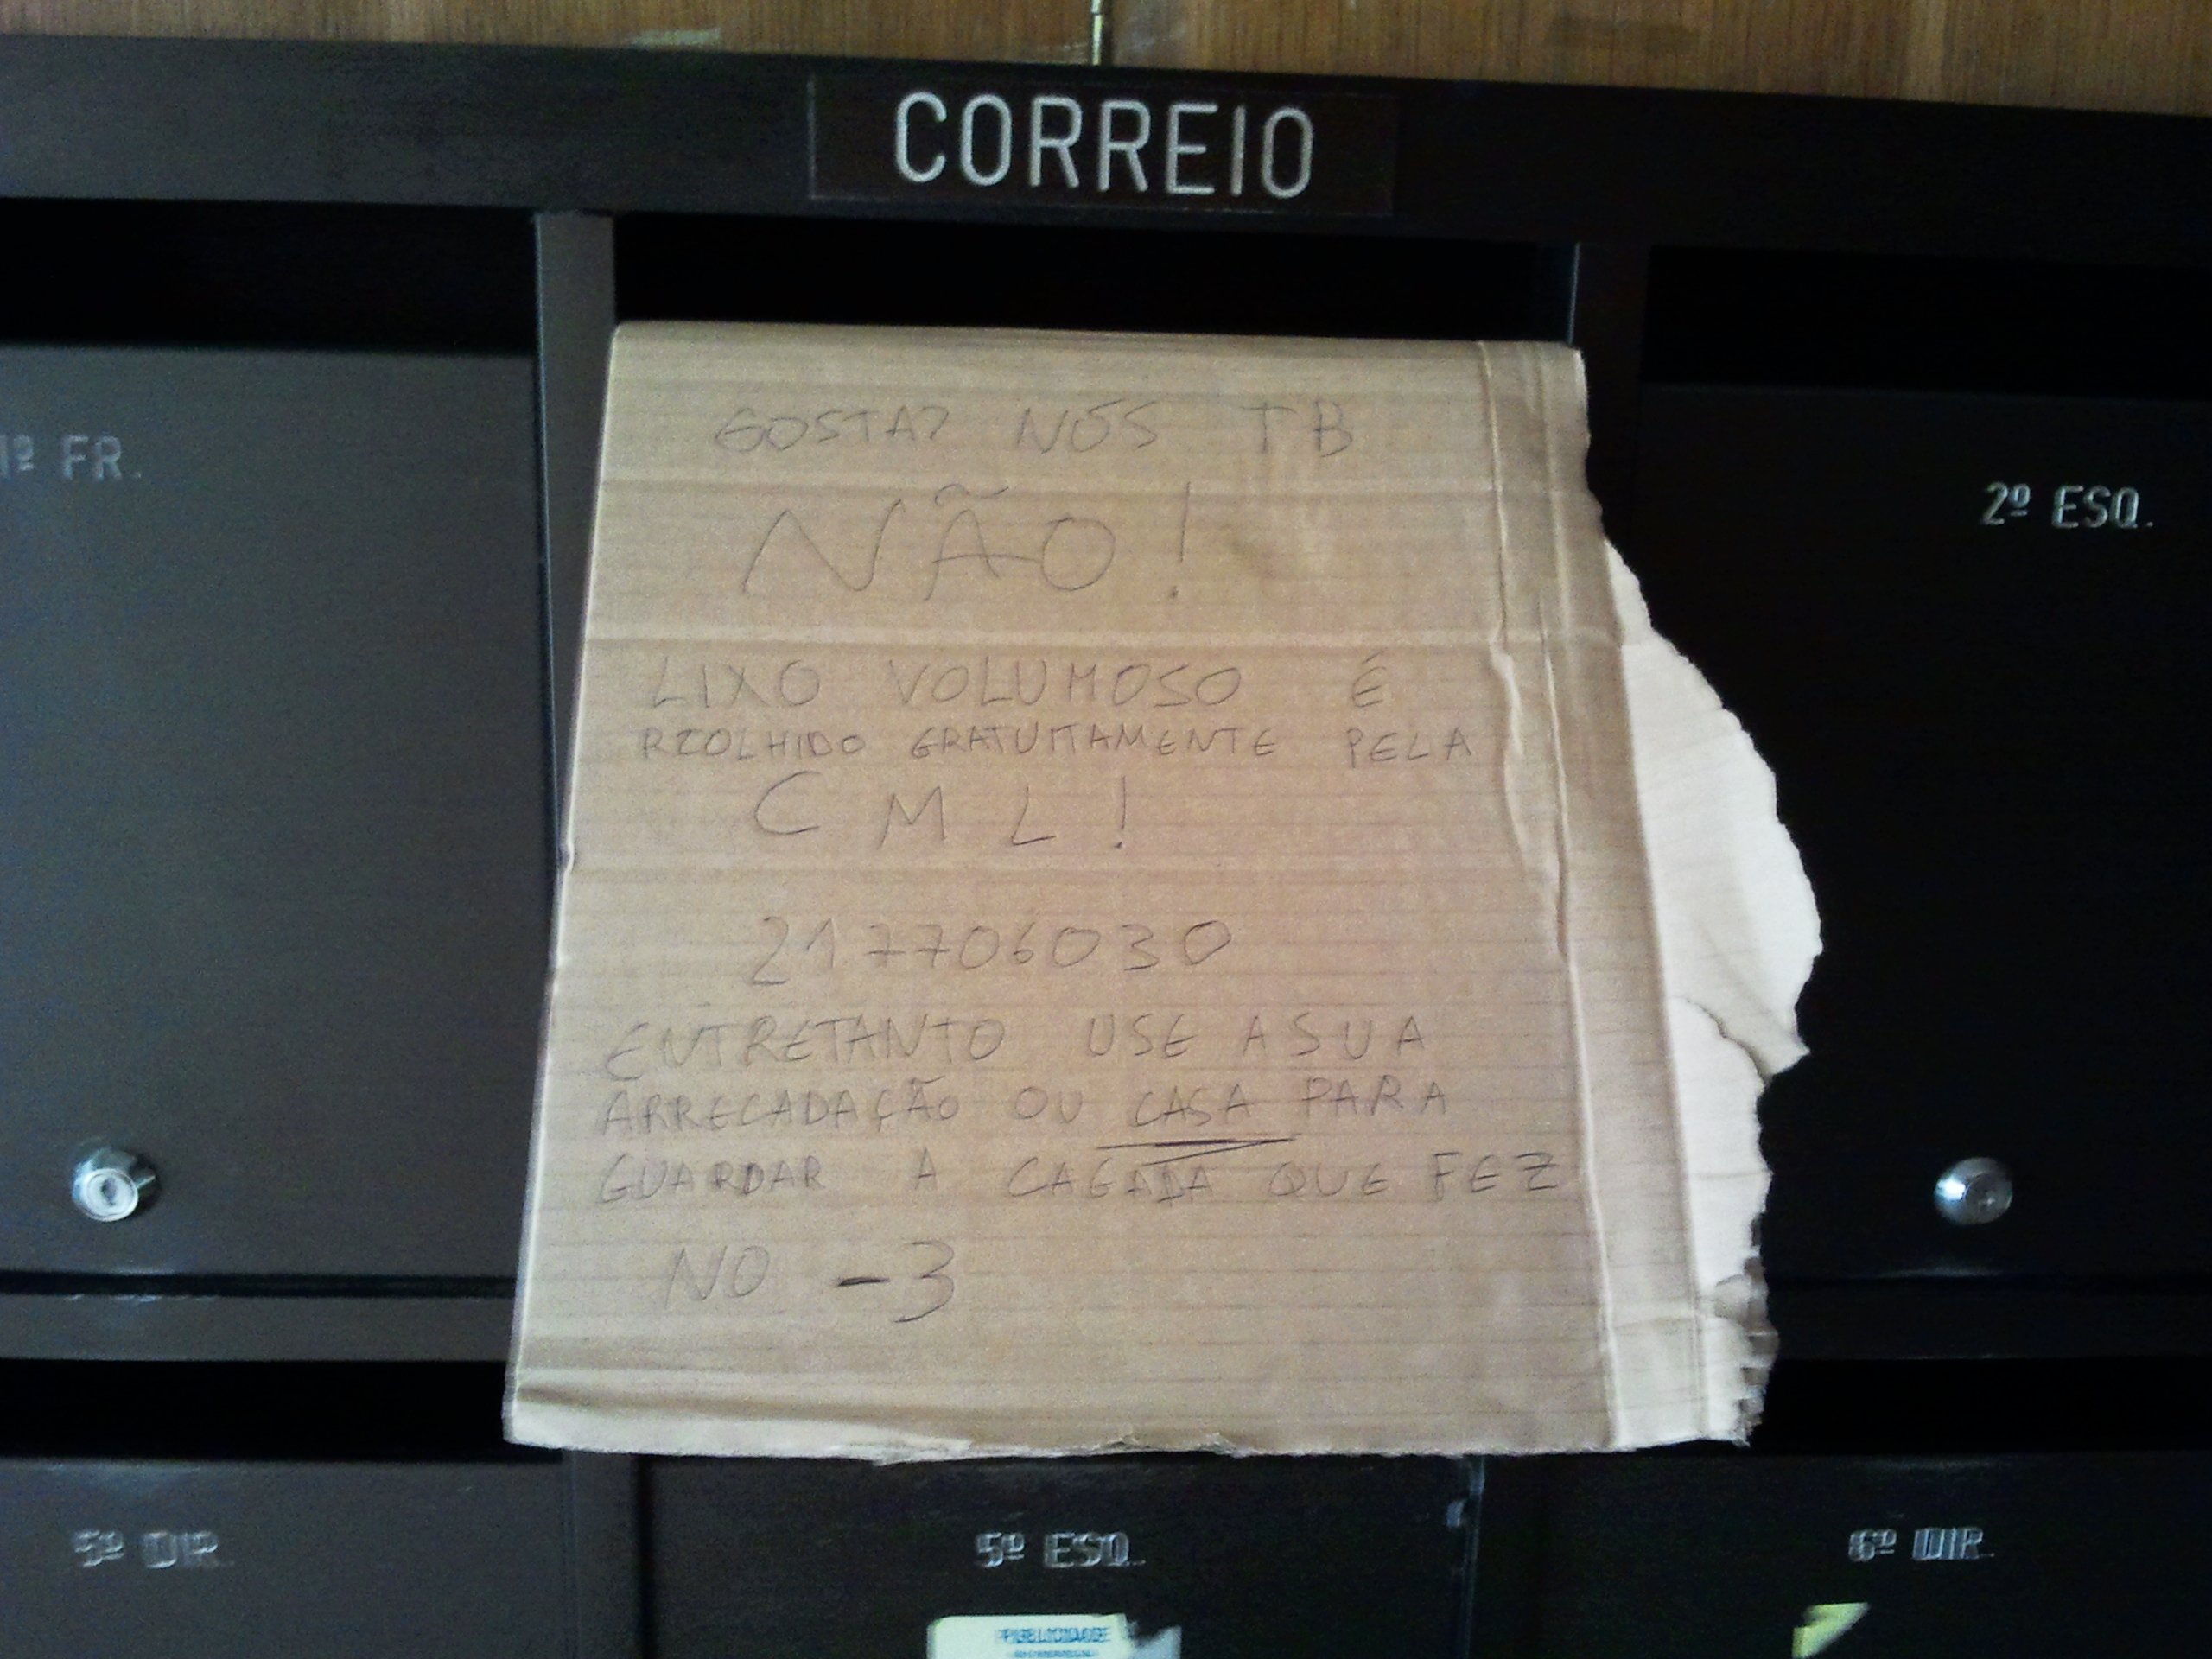 CORREIO
1º FR.
2º ESQ.
GOSTA? NÓS TB
NÃO!
LIXO VOLUMOSO É
RECOLHIDO GRATUITAMENTE PELA
CML!
217706030
ENTRETANTO USE A SUA
ARRECADAÇÃO OU CASA PARA
GUARDAR A CAGADA QUE FEZ
NO -3
5º DIR.
5º ESQ.
6º DIR.
PUBLICIDADE